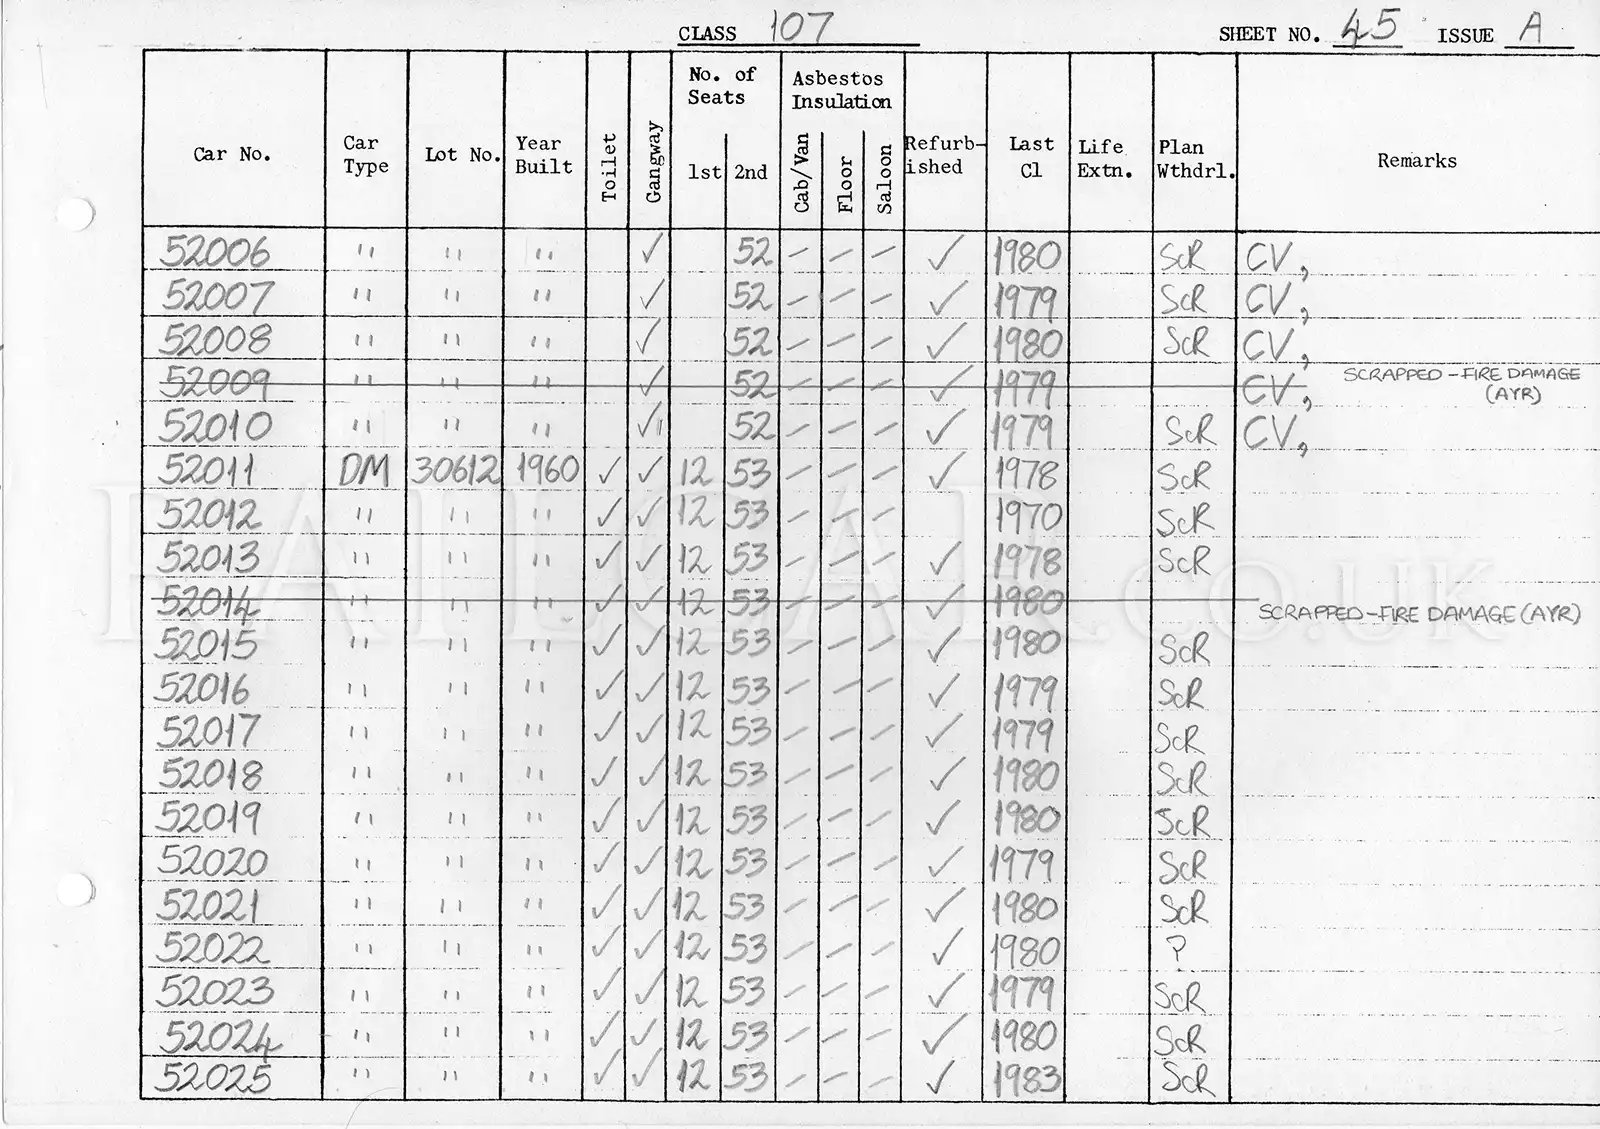 CLASS 107 SHEET NO. 45 ISSUE A
Car No. Car Type Lot No. Year Built Toilet Gangway No. of Seats 1st 2nd Asbestos Insulation Cab/Van Floor Saloon Refurb-ished Last Cl Life Extn. Plan Wthdrl. Remarks
52006 " " " ✓ 52 – – – ✓ 1980 ScR CV,
52007 " " " ✓ 52 – – – ✓ 1979 ScR CV,
52008 " " " ✓ 52 – – – ✓ 1980 ScR CV,
52009 " " " ✓ 52 – – – ✓ 1979 CV, SCRAPPED – FIRE DAMAGE (AYR)
52010 " " " ✓ 52 – – – ✓ 1979 ScR CV,
52011 DM 30612 1960 ✓ ✓ 12 53 – – – ✓ 1978 ScR
52012 " " " ✓ ✓ 12 53 – – – 1970 ScR
52013 " " " ✓ ✓ 12 53 – – – ✓ 1978 ScR
52014 " " " ✓ ✓ 12 53 – – – ✓ 1980 SCRAPPED – FIRE DAMAGE (AYR)
52015 " " " ✓ ✓ 12 53 – – – ✓ 1980 ScR
52016 " " " ✓ ✓ 12 53 – – – ✓ 1979 ScR
52017 " " " ✓ ✓ 12 53 – – – ✓ 1979 ScR
52018 " " " ✓ ✓ 12 53 – – – ✓ 1980 ScR
52019 " " " ✓ ✓ 12 53 – – – ✓ 1980 ScR
52020 " " " ✓ ✓ 12 53 – – – ✓ 1979 ScR
52021 " " " ✓ ✓ 12 53 – – – ✓ 1980 ScR
52022 " " " ✓ ✓ 12 53 – – – ✓ 1980 ?
52023 " " " ✓ ✓ 12 53 – – – ✓ 1979 ScR
52024 " " " ✓ ✓ 12 53 – – – ✓ 1980 ScR
52025 " " " ✓ ✓ 12 53 – – – ✓ 1983 ScR
RAILCAR.CO.UK